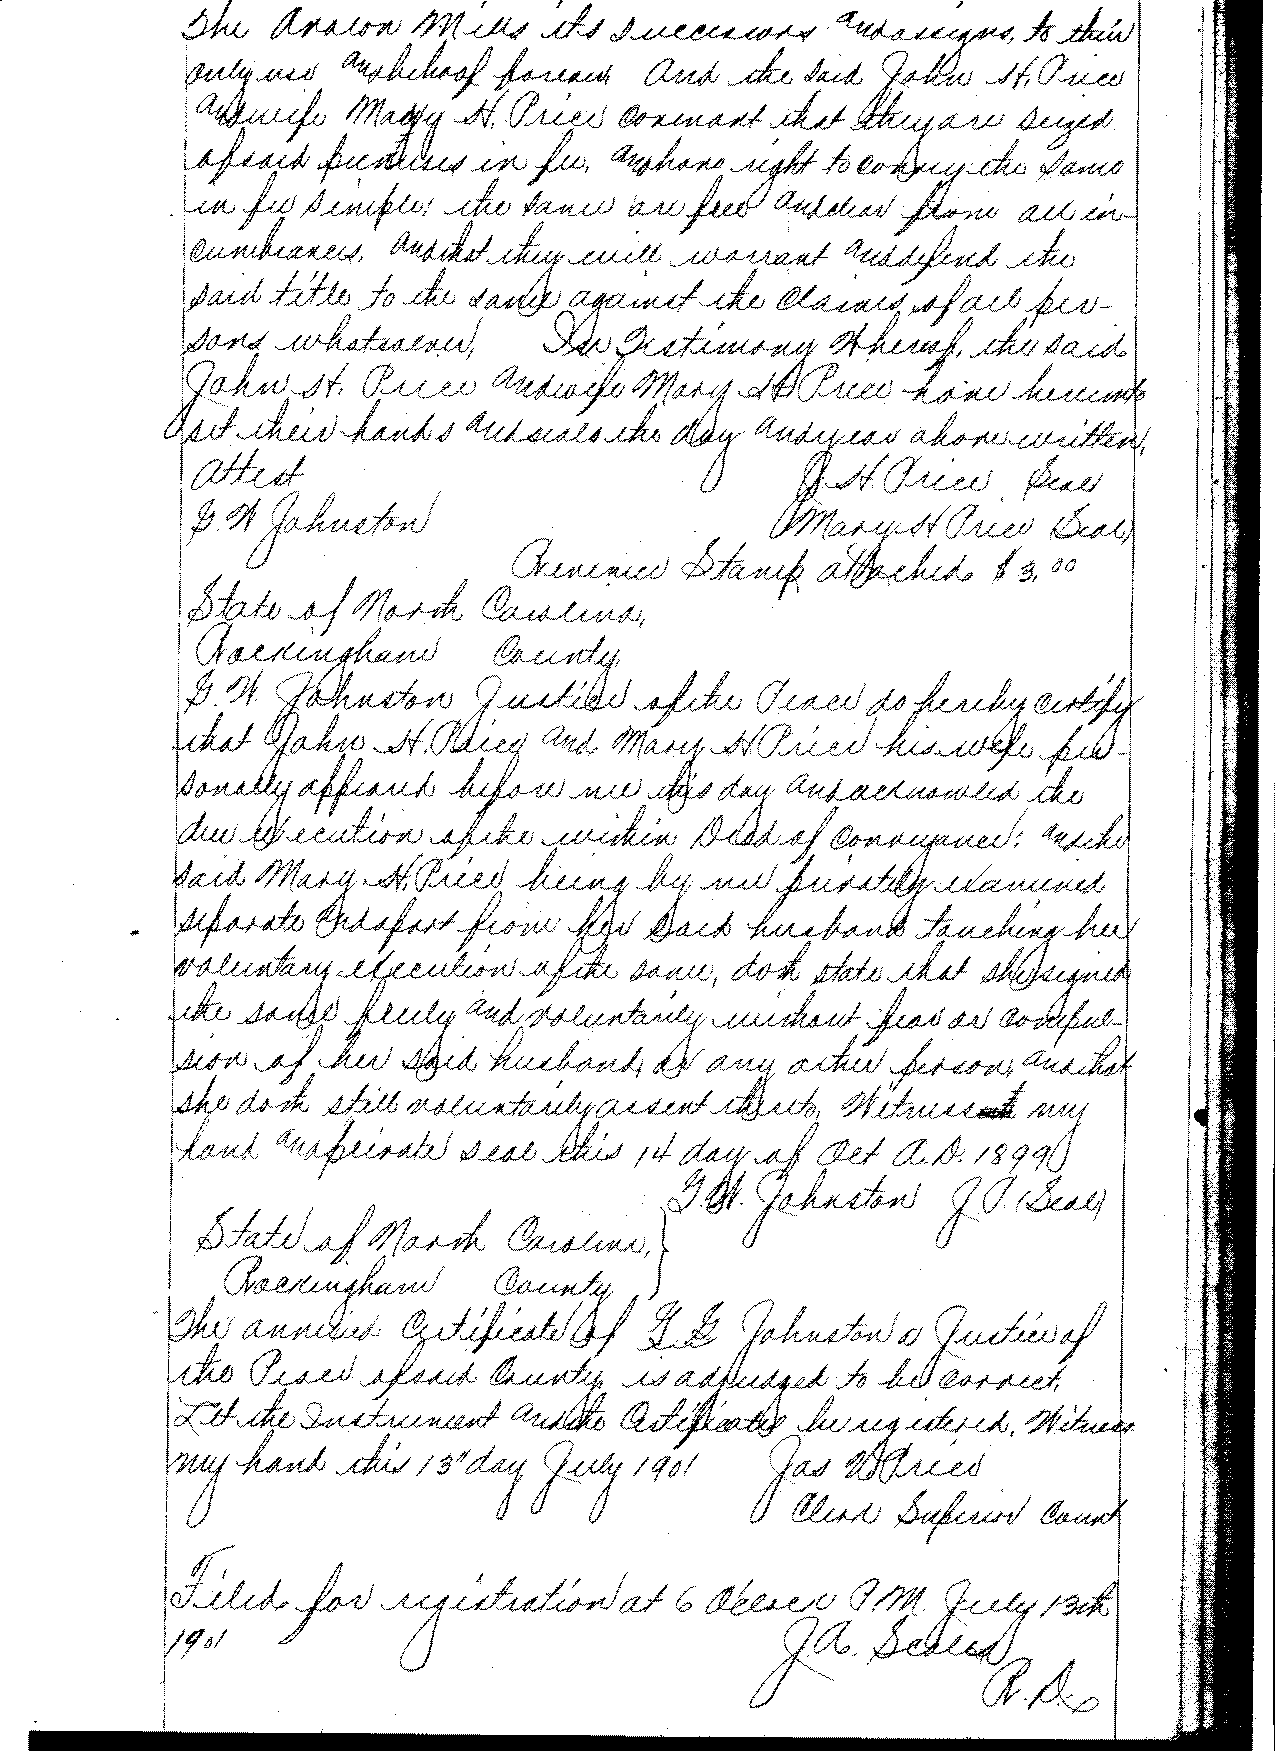 The Avalon Mills its successors and assigns, to their
only use and behoof forever. And the said John H. Price
and wife Mary H. Price covenant that they are seized
of said premises in fee, and have right to convey the same
in fee simple: the same are free and clear from all in-
cumbrances, and that they will warrant and defend the
said title to the same against the claims of all per-
sons whatsoever, In Testimony Whereof, the said
John H. Price and wife Mary H Price have hereunto
set their hands and seals the day and year above written,
Attest J. H. Price Seal
G. W Johnston Mary H Price Seal)
Revenue Stamp attached $3.00
State of North Carolina,
Rockingham County,
G. W. Johnston Justice of the Peace do hereby certify
that John H. Price and Mary H Price his wife per-
sonally appeared before me this day and acknowled the
due execution of the within Deed of Conveyance: and the
said Mary H. Price being by me privately examined
separate and apart from her said husband touching her
voluntary execution of the same, doth state that she signed
the same freely and voluntarily without fear or compul-
sion of her said husband, or any other person, and that
she doth still voluntarily assent thereto, Witness my
hand and private seal this 14 day of Oct A.D. 1899
G. W. Johnston J P. (Seal)
State of North Carolina,
Rockingham County
The annexed Certificate of G G Johnston a Justice of
the Peace of said County, is adjudged to be correct.
Let the Instrument and the Certificates be registered. Witness
my hand this 13" day July 1901 Jas W Price
Clerk Superior Court
Filed for registration at 6 Oclock P.M. July 13th
1901 J. A. Scales
R. D.